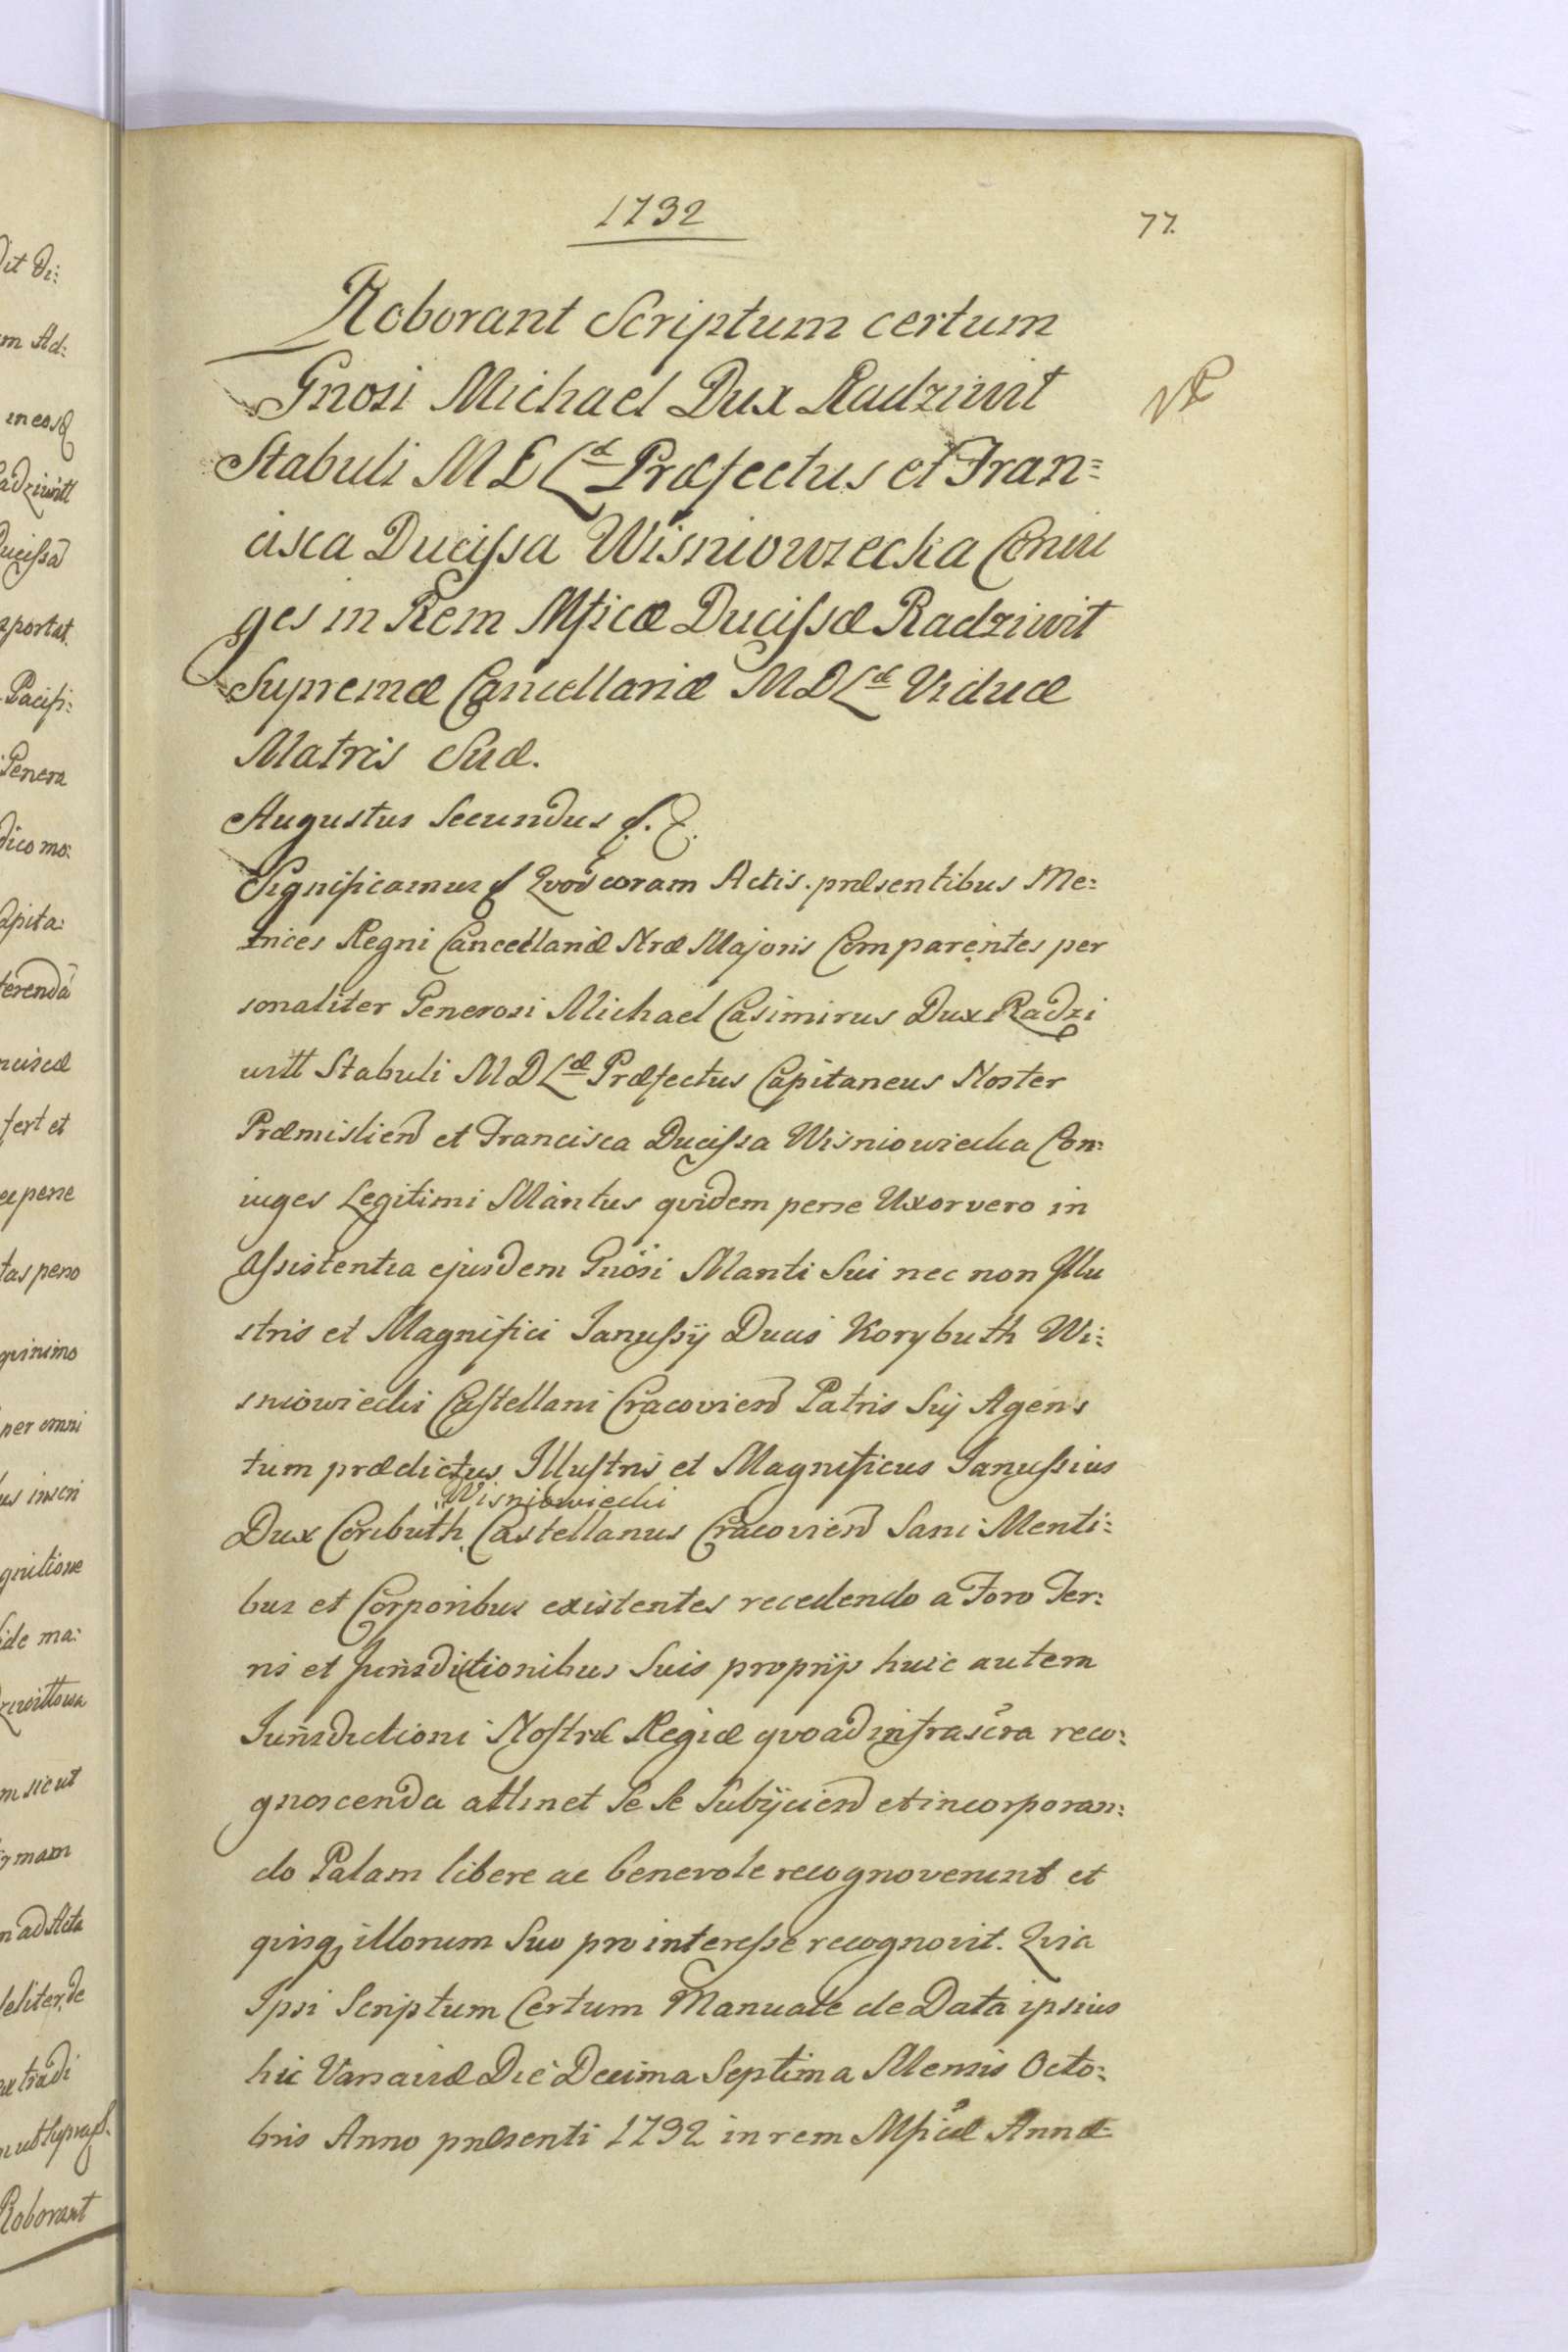 1732
77.
Roborant Scriptum certum
Gnosi Michael Dux Radziwił
NB
Stabuli M D Ld Præfectus et Fran=
cisca Ducissa Wisniowiecka Coniu
ges in Rem Mficæ Ducissæ Radziwił
Supremæ Cancellariæ M D Læ Viduæ
Matris Suæ.
Augustus Secundus &. &.
Significamus & Qvod coram Actis præsentibus Me=
trices Regni Cancellariæ Nræ Majoris Comparentes per
sonaliter Generosi Michael Casimirus Dux Radzi
witt Stabuli M D Læ Præfectus Capitaneus Noster
Præmislien et Francisca Ducissa Wisniowiecka Con=
iuges Legitimi Maritus qvidem per se Uxor vero in
Assistentia ejusdem Gnosi Mariti Sui nec non Illu
stris et Magnifici Janussij Ducis Korybuth Wi=
sniowiecki Castellani Cracovien Patris Sui Agens
tum prædictus Illustris et Magnificus Janussius
Wisniowiecki
Dux Coributh Castellanus Cracovien Sani Menti=
bus et Corporibus existentes recedendo a Foro Ter=
ris et Jurisdictionibus Suis proprijs huic autem
Jurisdictioni Nostræ Regiæ qvoad infrascra reco=
gnoscenda attinet Se Se Subijcien et incorporan=
do Palam libere ac benevole recognoverunt et
qvisq illorum Suo pro interesse recognovit. Qvia
Ipsi Scriptum Certum Manuale de Data ipsius
hic Varsaviæ Die Decima Septima Mensis Octo=
bris Anno præsenti 1732 in rem Mficæ Annæ
dit Di=
m Ad=
in eosq
adziwitt
Ducissa
Pacifi=
Genera
dico mo=
apita=
ferenda
nciscæ
fert et
per omni
gnitione
ide ma=
m sicut
n ad Acta
eliter de
Roborant